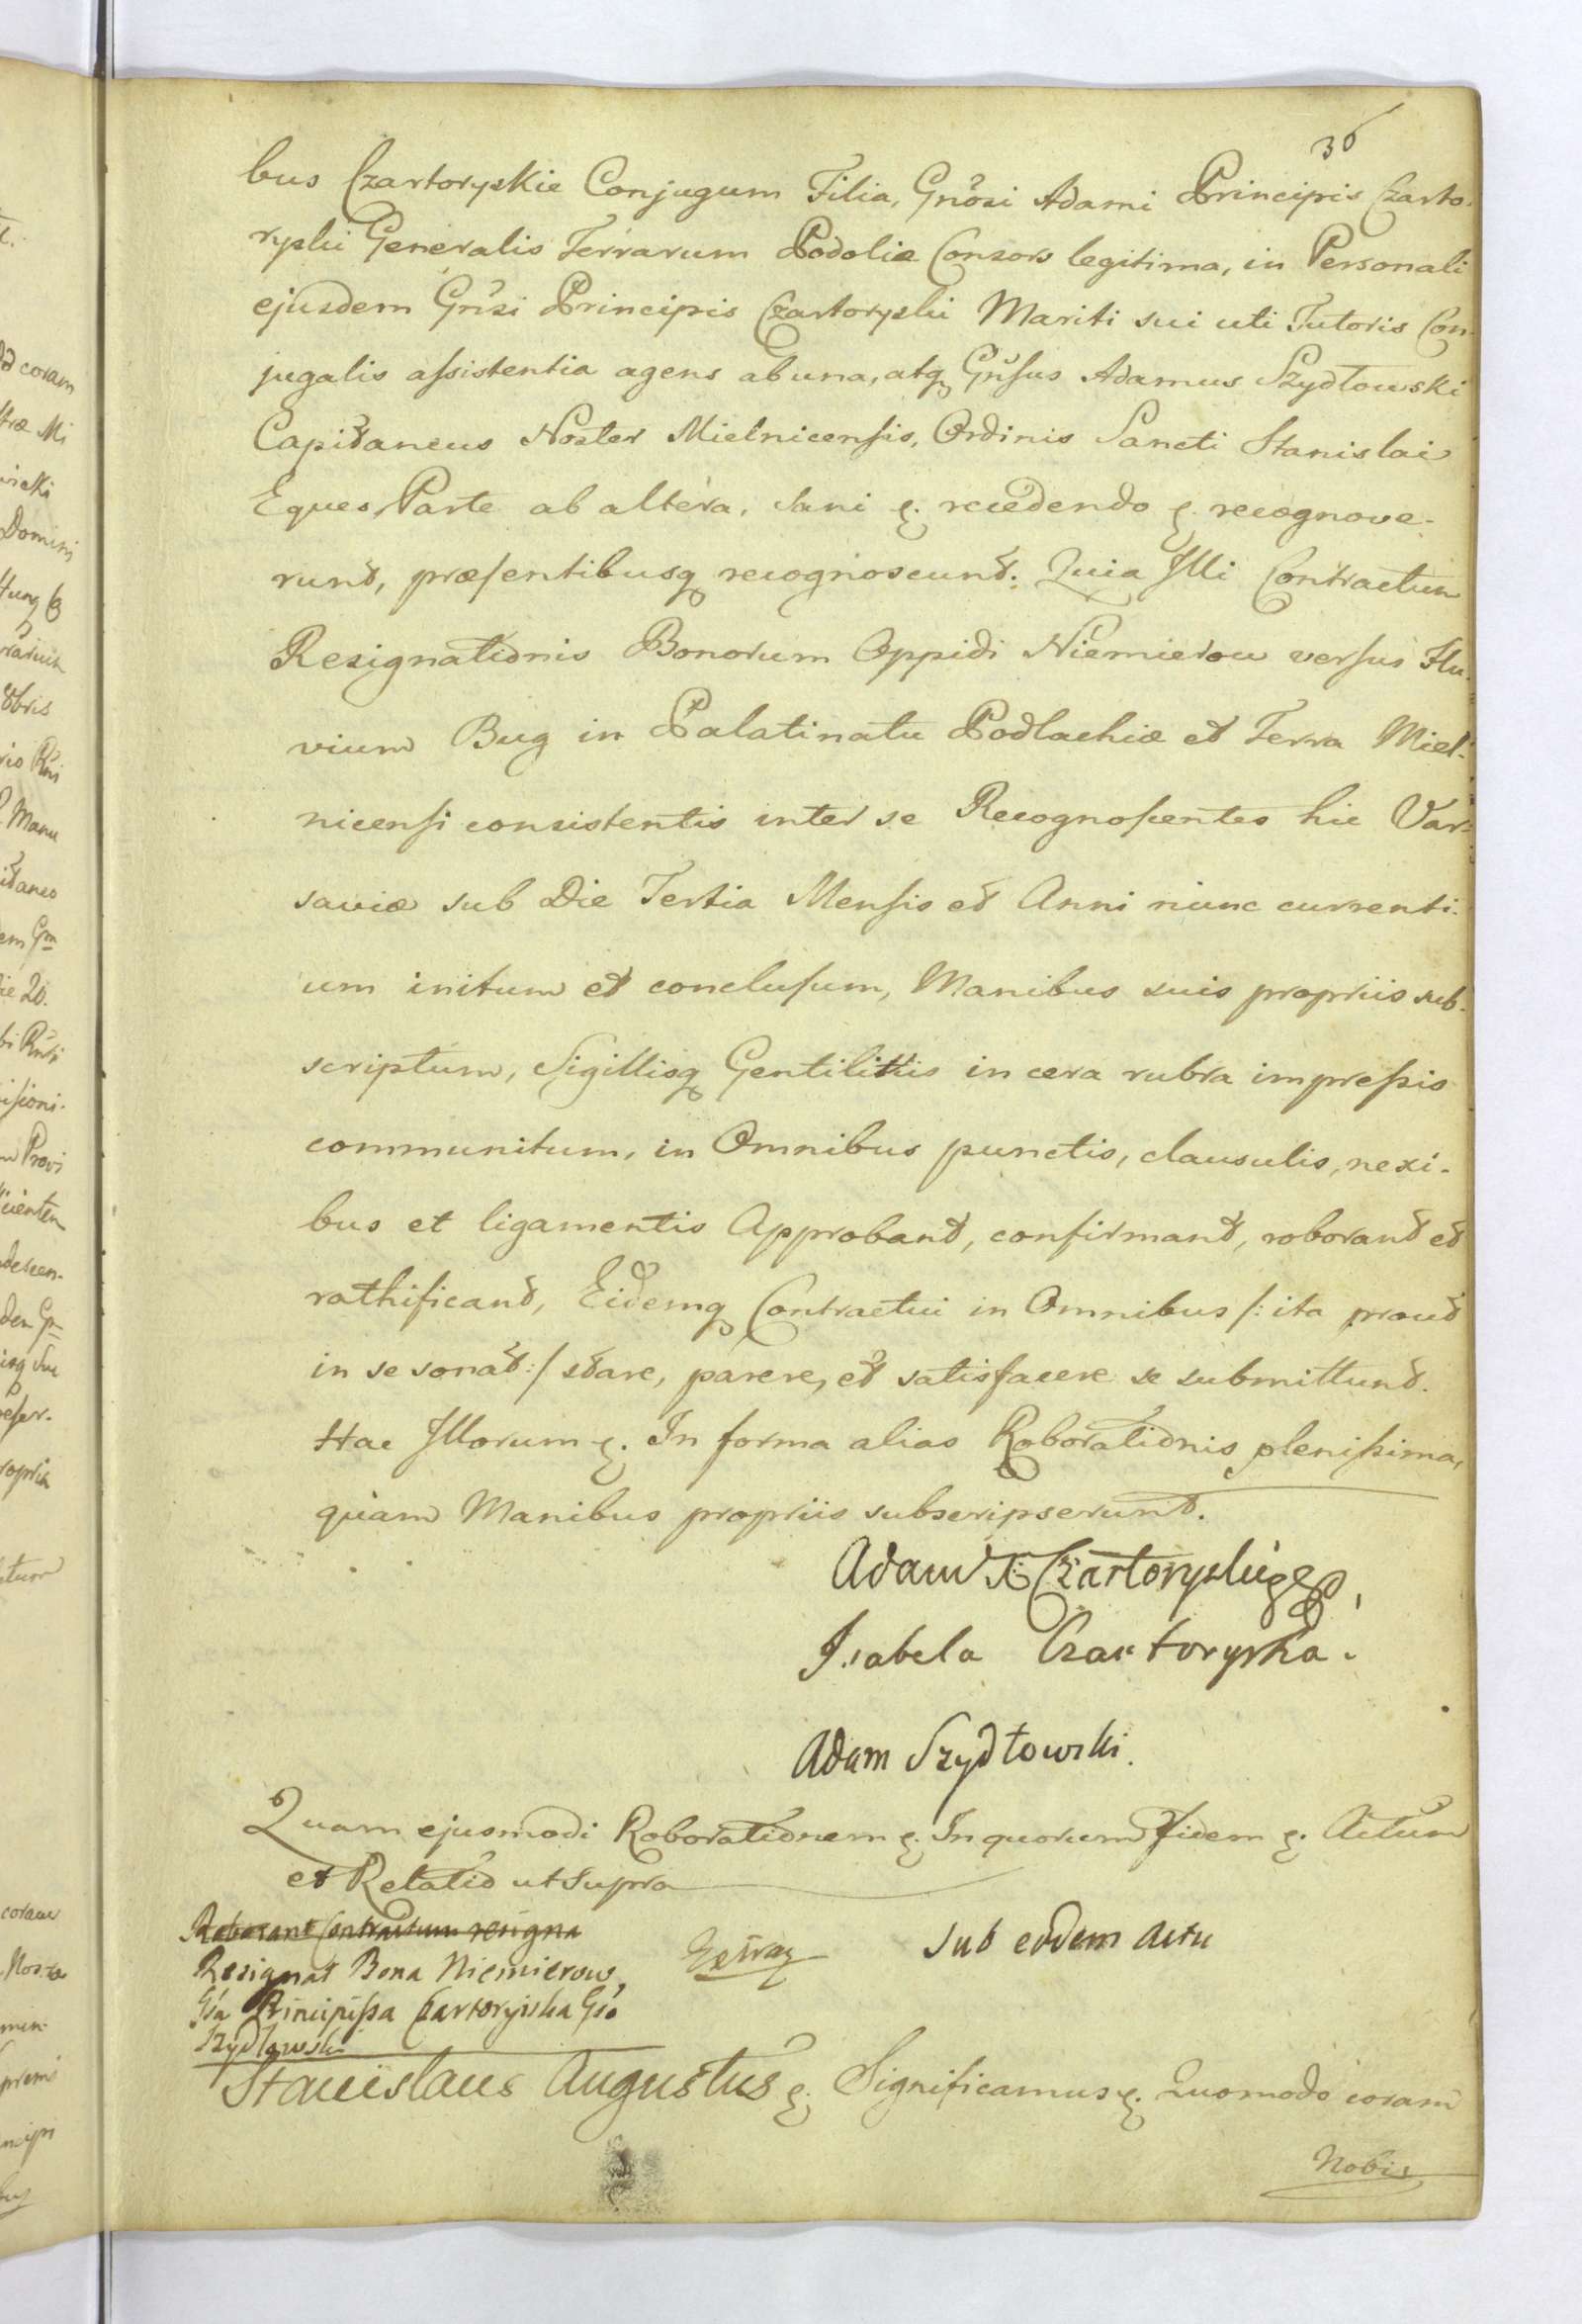 36
bus Czartoryskie Conjugum Filia, Gnosi Adami Principis Czarto-
ryski Generalis Terrarum Podoliæ Consors legitima, in Personali
ejusdem Gnsi Principis Czartoryski Mariti sui uti Tutoris Con-
jugalis assistentia agens ab una, atq Gnsus Adamus Szydłowski
Capitaneus Noster Mielnicensis, Ordinis Sancti Stanislai
Eques, Parte ab altera, sani &. recedendo &. recognove-
runt, præsentibusq recognoscunt: Quia Illi Contractum
Resignationis Bonorum Oppidi Niemierow versus Flu-
vium Bug in Palatinatu Podlachiæ et Terra Miel-
nicensi consistentis inter se Recognoscentes hic Var-
saviæ sub Die Tertia Mensis et Anni nunc currenti-
um initum et conclusum, Manibus suis propriis sub-
scriptum, Sigillisq Gentilitiis in cera rubra impressis
communitum, in Omnibus punctis, clausulis, nexi-
bus et ligamentis Approbant, confirmant, roborant et
rathificant, Eidemq Contractui in Omnibus /: ita prout
in se sonat :/ stare, parere, et satisfacere se submittunt.
Hac Illorum &. In forma alias Roborationis plenissima,
quam Manibus propriis subscripserunt.
Adam X Czartoryski
Isabela Czartoryska.
Adam Szydłowski.
Quam ejusmodi Roborationem &. In quorum Fidem &. Actum
et Relatio ut supra
Roborant Contractum resigna
Resignat Bona Niemierow,
Gsa Principissa Czartoryiska Gso
Szydlowski
Extraz
sub eodem Actu
Stanislaus Augustus &. Significamus &. Quomodo coram
Nobis